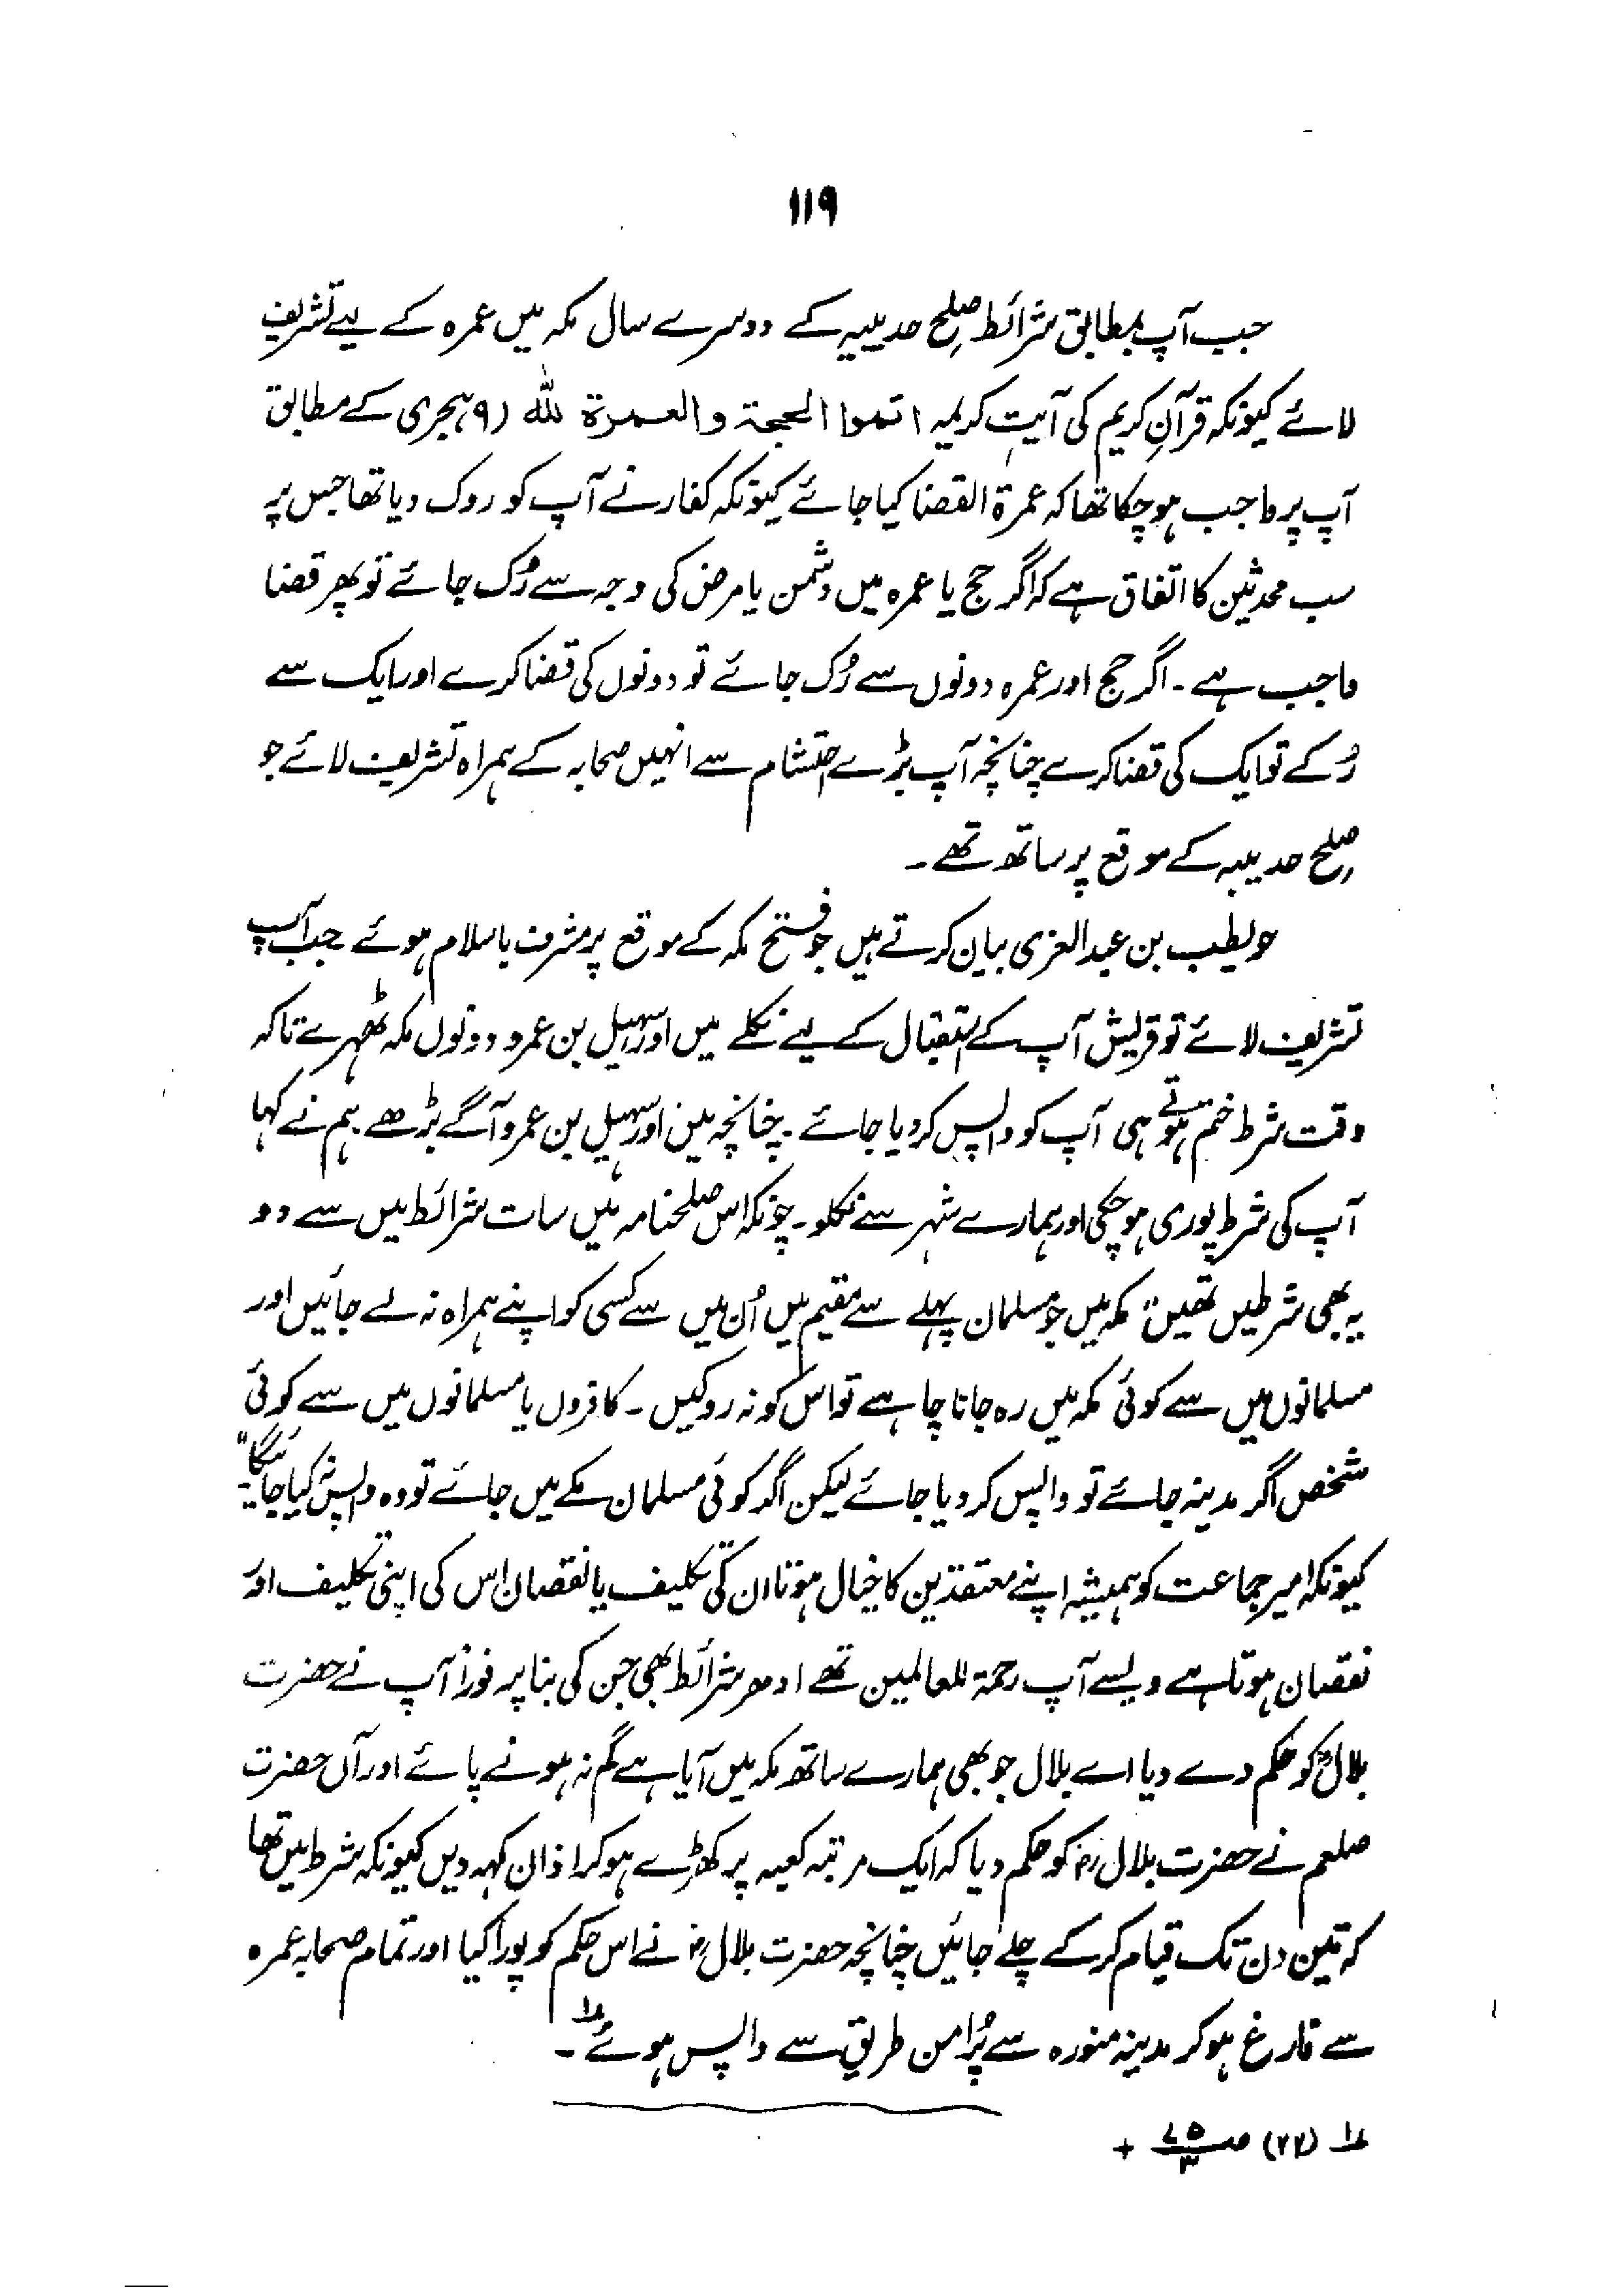 ۱۱۹
جب آپ بمطابق شرائط صلح حدیبیہ کے دوسرے سال مکہ میں عمرہ کے لیے تشریف
لائے کیونکہ قرآنِ کریم کی آیتِ کریمہ اتموا الحجۃ والعمرۃ للّٰہ (۹ہجری کے مطابق
آپ پر واجب ہو چکا تھا کہ عمرۃ القضا کیا جائے کیونکہ کفار نے آپ کو روک دیا تھا جس پر
سب محدثین کا اتفاق ہے کہ اگر حج یا عمرہ میں دشمن یا مرض کی وجہ سے رُک جائے تو پھر قضا
واجب ہے ۔ اگر حج اور عمرہ دونوں سے رُک جائے تو دونوں کی قضا کرے اور ایک سے
رُکے تو ایک کی قضا کرے چنانچہ آپ بڑے احتشام سے انہیں صحابہ کے ہمراہ تشریف لائے جو
صلح حدیبیہ کے موقع پر ساتھ تھے ۔
حویطب بن عبدالعزی بیان کرتے ہیں جو فتح مکہ کے موقع پر مشرف باسلام ہوئے جب آپ
تشریف لائے تو قریش آپ کے استقبال کے لیے نکلے میں اور سہیل بن عمرو دونوں مکہ ٹھہرے تاکہ
وقت شرط ختم ہوتے ہی آپ کو واپس کر دیا جائے ۔ چنانچہ میں اور سہیل بن عمرو آگے بڑھے ہم نے کہا
آپ کی شرط پوری ہو چکی اور ہمارے شہر سے نکلو ۔ چونکہ اس صلحنامہ میں سات شرائط میں سے دو
یہ بھی شرطیں تھیں "مکہ میں جو مسلمان پہلے سے مقیم ہیں اُن میں سے کسی کو اپنے ہمراہ نہ لے جائیں اور
مسلمانوں میں سے کوئی مکہ میں رہ جانا چاہے تو اس کو نہ روکیں ۔ کافروں یا مسلمانوں میں سے کوئی
شخص اگر مدینہ جائے تو واپس کر دیا جائے لیکن اگر کوئی مسلمان مکے میں جائے تو وہ واپس نہ کیا جائیگا"۔
کیونکہ امیر جماعت کو ہمیشہ اپنے معتقدین کا خیال ہوتا ان کی تکلیف یا نقصان اس کی اپنی تکلیف اور
نقصان ہوتا ہے ویسے آپ رحمۃ للعالمین تھے ادھر شرائط بھی جن کی بنا پر فوراً آپ نے حضرت
بلالؓ کو حکم دے دیا اے بلال جو بھی ہمارے ساتھ مکہ میں آیا ہے گم نہ ہونے پائے اور آں حضرت
صلعم نے حضرت بلال رض کو حکم دیا کہ ایک مرتبہ کعبہ پر کھڑے ہو کر اذان کہہ دیں کیونکہ شرط میں تھا
کہ تین دن تک قیام کر کے چلے جائیں چنانچہ حضرت بلال رض نے اس حکم کو پورا کیا اور تمام صحابہ عمرہ
سے فارغ ہو کر مدینہ منورہ سے پُرامن طریق سے واپس ہوئے ۱؎ ۔
۱؎ (۲۲) ص ۷۵/۳ +